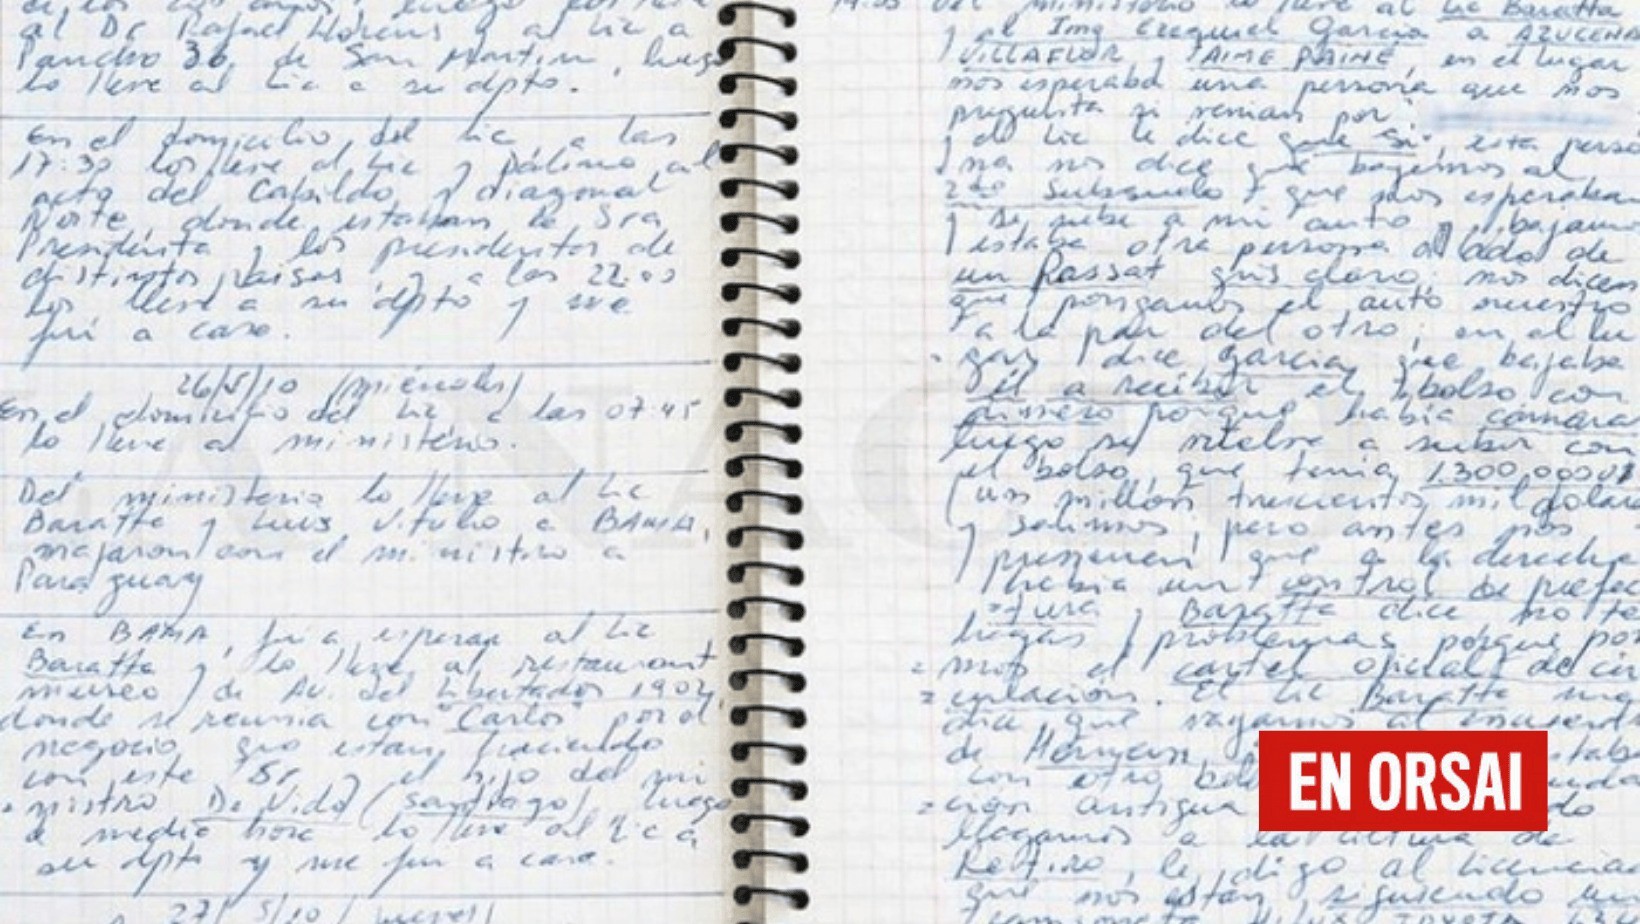 al Dr Rafael Llorens y al Lic a
Pancho 36, de San Martin, luego
lo lleve al Lic a su dpto.
En el domicilio del Lic, a las
17:30 los lleve al Lic y Pálimo al
acto del Cabildo y diagonal
Norte, donde estaban la Sra
Presidenta y los presidentes de
distintos paises, y a las 22:00
los lleve a su dpto y me
fui a casa.
26/5/10 (miércoles)
En el domicilio del Lic a las 07:45
lo lleve al ministerio.
Del ministerio lo lleve al Lic
Baratta y Luis Vitullo a BAMA,
viajaron con el ministro a
Paraguay
En BAMA, fui a esperar al Lic
Baratta y lo lleve al restaurant
museo de Av. del Libertador 1902,
donde se reunia con "Carlos" por el
negocio que estan haciendo
con este Sr y el hijo del mi
nistro De Vido (Santiago), luego
de media hora lo lleve al Lic a
su dpto y me fui a casa.
27/5/10 (jueves)
del ministerio lo lleve al Lic Baratta
y al Ing Ezequiel Garcia a AZUCENA
VILLAFLOR y JAIME PAINE, en el lugar
nos esperaba una persona que nos
pregunta si venian por
y el Lic le dice que si, esta perso
na nos dice que bajemos al
2do Subsuelo y que nos esperaban
y se sube a mi auto, bajamos
y estaba otra persona al lado de
un Passat gris claro; nos dicen
que pongamos el auto nuestro
a la par del otro; en el lu
gar dice Garcia, que bajaba
él a recibir el bolso con
dinero porque habia camaras
luego se vuelve a subir con
el bolso, que tenia 1.300.000 U$
(un millón trescientos mil dolare
y salimos, pero antes nos
previenen que a la derecha
habia un control de prefec
tura y Baratta dice no te
hagas problemas porque por
mos el cartel oficial de cir
culación. El Lic Baratta me
dice que vayamos al encuentro
de Hernan,
con otro
antigua
llegamos a la altura de
Retiro, le digo al Licencia
que nos estan siguiendo un
EN ORSAI